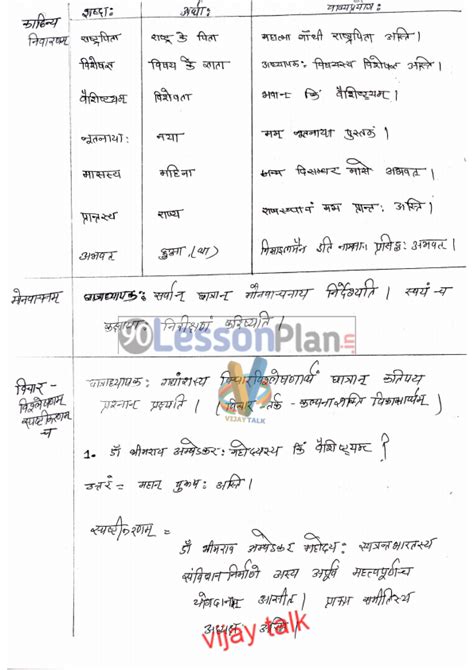 शब्दाः अर्थाः वाक्यप्रयोगः
काठिन्य
निवारणम्
राष्ट्रपिता राष्ट्र के पिता महात्मा गाँधी राष्ट्रपिता अस्ति।
विशेषज्ञ विषय के ज्ञाता अध्यापकः विषयस्य विशेषज्ञ अस्ति।
वैशिष्ट्यम् विशेषता किं वैशिष्ट्यम्।
नूतनायाः नया मम नूतनाया पुस्तकं।
मासस्य महिना दिसम्बर मासे अभवत्।
प्रान्तस्य राज्य मम प्रान्तः अस्ति।
अभवत् हुआ (था) इति नाम्ना प्रसिद्धः अभवत्।
मौनवाचनम् छात्राध्यापकः सर्वान् छात्रान् मौनवाचनाय निर्देक्ष्यति। स्वयं च
कक्षायाः निरीक्षणं करिष्यति।
LessonPlan.in
विचार -
विश्लेषणम्
स्पष्टीकरणम्
च
छात्राध्यापकः गद्यांशस्य विचारविश्लेषणार्थं छात्रान् कतिपय
प्रश्नान् प्रक्ष्यति। (विचार-तर्क - कल्पनाशक्ति विकासार्थम्)
VIJAY TALK
1. डॉ भीमराव अम्बेडकरः महोदयस्य किं वैशिष्ट्यम्?
उत्तरं = महान् पुरुषः अस्ति।
स्पष्टीकरणम् =
डॉ भीमराव अम्बेडकर महोदयः स्वतन्त्रभारतस्य
संविधान निर्माणे तस्य अपूर्व महत्वपूर्णञ्च
योगदानम् आसीत्। समितिस्य
अध्यक्ष अस्ति।
vijay talk